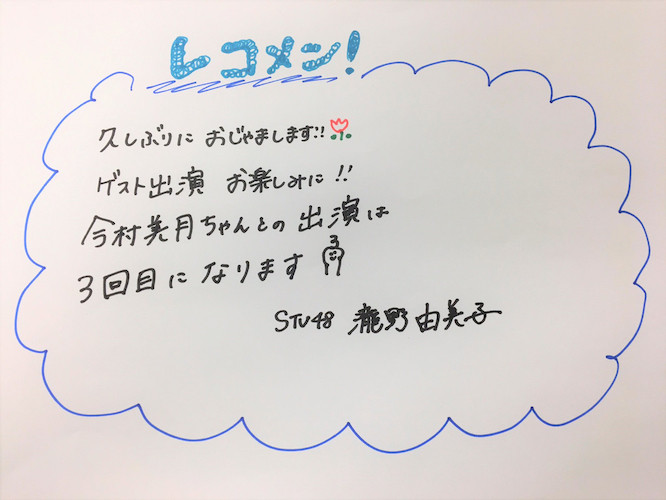 レコメン!
久しぶりに おじゃまします!!
ゲスト出演 お楽しみに!!
今村美月ちゃんとの出演は
3回目になります
STU48 瀧野由美子